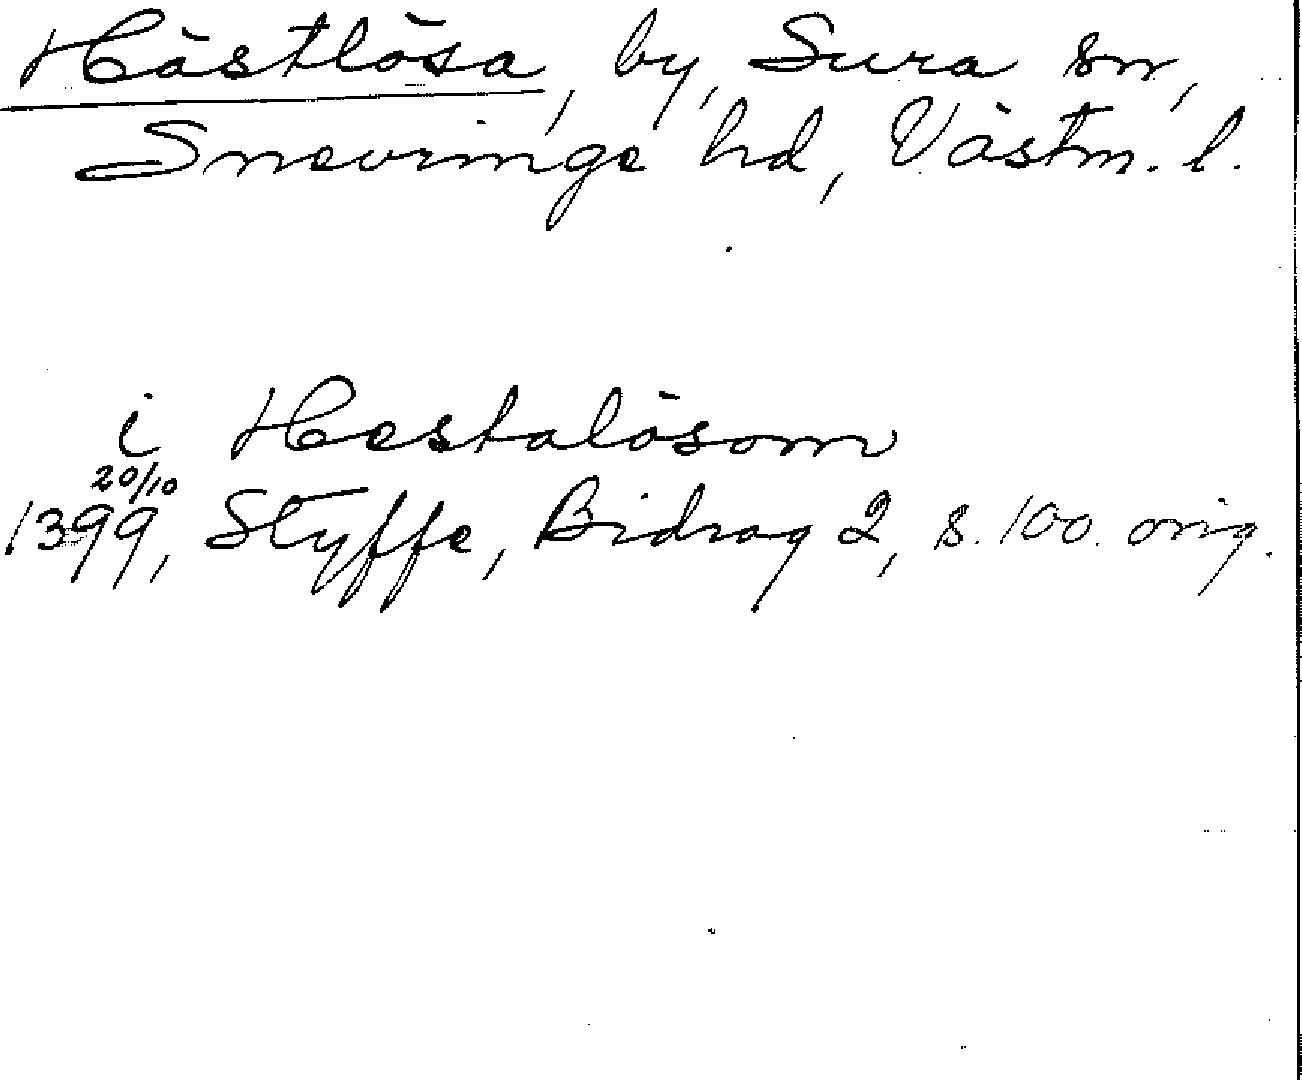 Hästlösa, by, Sura sn,
Snevringe hd, Västm. l.
i Hestalösom
20/10
1399, Styffe, Bidrag 2, s. 100. orig.